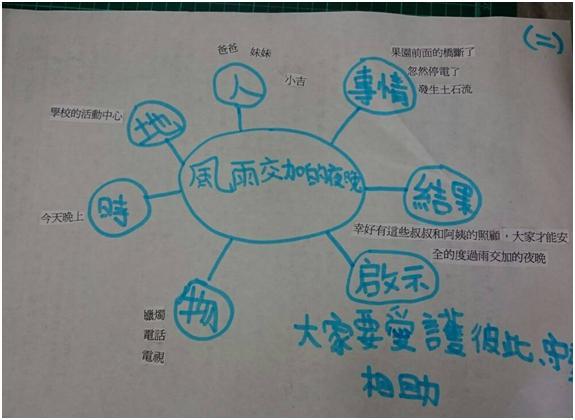 (二)
爸爸 妹妹
小吉
人
果園前面的橋斷了
忽然停電了
發生土石流
事情
學校的活動中心
地
風雨交加的夜晚
今天晚上
時
結果
幸好有這些叔叔和阿姨的照顧，大家才能安
全的度過雨交加的夜晚
蠟燭
電話
電視
物
啟示
大家要愛護彼此、守望
相助